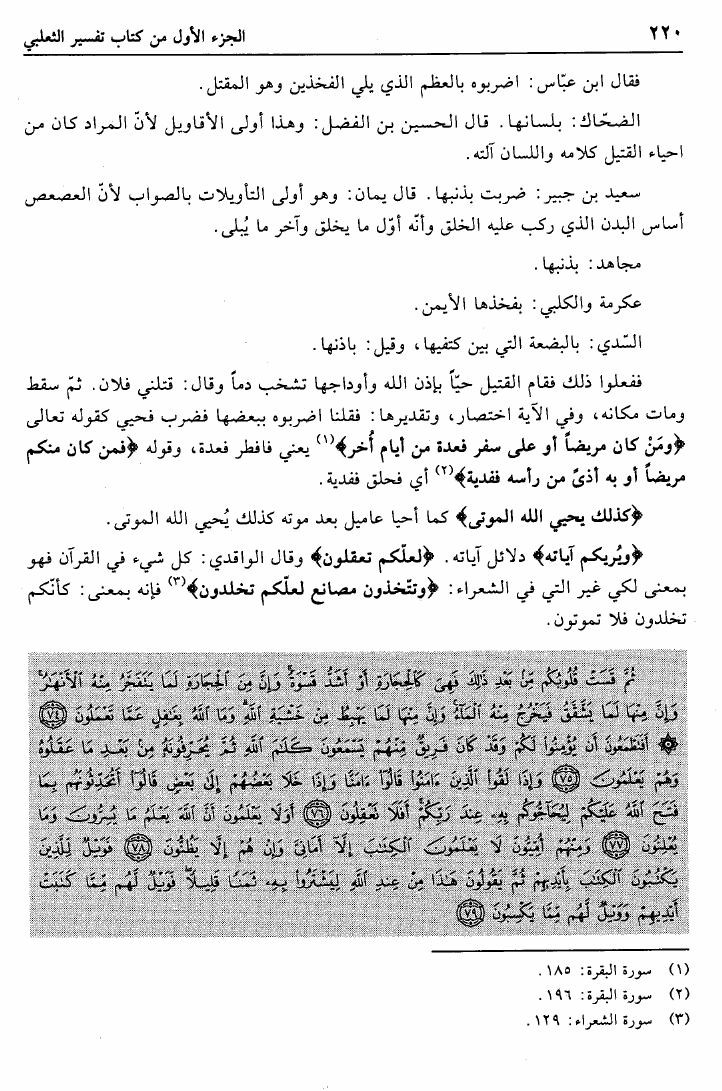 ٢٢٠ الجزء الأول من كتاب تفسير الثعلبي
فقال ابن عبّاس: اضربوه بالعظم الذي يلي الفخذين وهو المقتل.
الضحّاك: بلسانها. قال الحسين بن الفضل: وهذا أولى الأقاويل لأنّ المراد كان من
احياء القتيل كلامه واللسان آلته.
سعيد بن جبير: ضربت بذنبها. قال يمان: وهو أولى التأويلات بالصواب لأنّ العصعص
أساس البدن الذي ركب عليه الخلق وأنّه أوّل ما يخلق وآخر ما يُبلى.
مجاهد: بذنبها.
عكرمة والكلبي: بفخذها الأيمن.
السّدي: بالبضعة التي بين كتفيها، وقيل: باذنها.
ففعلوا ذلك فقام القتيل حيّاً بإذن الله وأوداجها تشخب دماً وقال: قتلني فلان. ثمّ سقط
ومات مكانه، وفي الآية اختصار، وتقديرها: فقلنا اضربوه ببعضها فضرب فحيي كقوله تعالى
﴿ومَنْ كان مريضاً أو على سفر فعدة من أيام أُخر﴾(١) يعني فافطر فعدة، وقوله ﴿فمن كان منكم
مريضاً أو به أذىً من رأسه ففدية﴾(٢) أي فحلق ففدية.
﴿كذلك يحيي الله الموتى﴾ كما أحيا عاميل بعد موته كذلك يُحيي الله الموتى.
﴿ويُريكم آياته﴾ دلائل آياته. ﴿لعلّكم تعقلون﴾ وقال الواقدي: كل شيء في القرآن فهو
بمعنى لكي غير التي في الشعراء: ﴿وتتّخذون مصانع لعلّكم تخلدون﴾(٣) فإنه بمعنى: كأنّكم
تخلدون فلا تموتون.
ثُمَّ قَسَتْ قُلُوبُكُم مِّنۢ بَعْدِ ذَٰلِكَ فَهِىَ كَٱلْحِجَارَةِ أَوْ أَشَدُّ قَسْوَةً ۚ وَإِنَّ مِنَ ٱلْحِجَارَةِ لَمَا يَتَفَجَّرُ مِنْهُ ٱلْأَنْهَٰرُ ۚ
وَإِنَّ مِنْهَا لَمَا يَشَّقَّقُ فَيَخْرُجُ مِنْهُ ٱلْمَآءُ ۚ وَإِنَّ مِنْهَا لَمَا يَهْبِطُ مِنْ خَشْيَةِ ٱللَّهِ ۗ وَمَا ٱللَّهُ بِغَٰفِلٍ عَمَّا تَعْمَلُونَ ﴿٧٤﴾
۞ أَفَتَطْمَعُونَ أَن يُؤْمِنُوا۟ لَكُمْ وَقَدْ كَانَ فَرِيقٌ مِّنْهُمْ يَسْمَعُونَ كَلَٰمَ ٱللَّهِ ثُمَّ يُحَرِّفُونَهُۥ مِنۢ بَعْدِ مَا عَقَلُوهُ
وَهُمْ يَعْلَمُونَ ﴿٧٥﴾ وَإِذَا لَقُوا۟ ٱلَّذِينَ ءَامَنُوا۟ قَالُوٓا۟ ءَامَنَّا وَإِذَا خَلَا بَعْضُهُمْ إِلَىٰ بَعْضٍ قَالُوٓا۟ أَتُحَدِّثُونَهُم بِمَا
فَتَحَ ٱللَّهُ عَلَيْكُمْ لِيُحَآجُّوكُم بِهِۦ عِندَ رَبِّكُمْ ۚ أَفَلَا تَعْقِلُونَ ﴿٧٦﴾ أَوَلَا يَعْلَمُونَ أَنَّ ٱللَّهَ يَعْلَمُ مَا يُسِرُّونَ وَمَا
يُعْلِنُونَ ﴿٧٧﴾ وَمِنْهُمْ أُمِّيُّونَ لَا يَعْلَمُونَ ٱلْكِتَٰبَ إِلَّآ أَمَانِىَّ وَإِنْ هُمْ إِلَّا يَظُنُّونَ ﴿٧٨﴾ فَوَيْلٌ لِّلَّذِينَ
يَكْتُبُونَ ٱلْكِتَٰبَ بِأَيْدِيهِمْ ثُمَّ يَقُولُونَ هَٰذَا مِنْ عِندِ ٱللَّهِ لِيَشْتَرُوا۟ بِهِۦ ثَمَنًا قَلِيلًا ۖ فَوَيْلٌ لَّهُم مِّمَّا كَتَبَتْ
أَيْدِيهِمْ وَوَيْلٌ لَّهُم مِّمَّا يَكْسِبُونَ ﴿٧٩﴾
(١) سورة البقرة: ١٨٥.
(٢) سورة البقرة: ١٩٦.
(٣) سورة الشعراء: ١٢٩.